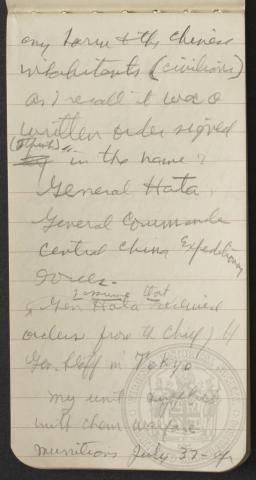 any harm to the Chinese
inhabitants (civilians)
as I recall it was a
written order signed
" in the name of
General Hata,
General Commander
Central China Expeditionary
Forces.
I assume that
Gen Hata received
orders from the Chief of
Gen Staff in Tokyo
my unit supplied
with chem warfare
munitions July 37 -